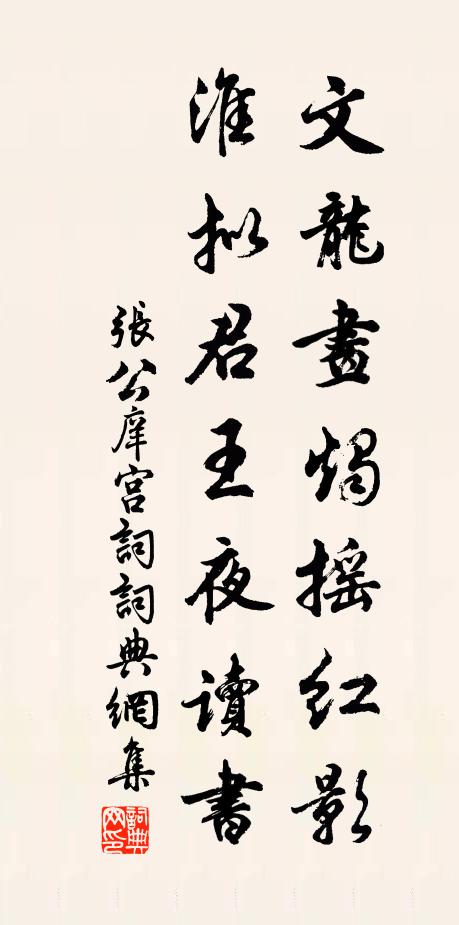 文龍畫燭摇紅影
淮拟君王夜讀書
張公庠宫詞詞典網集
詞典网印